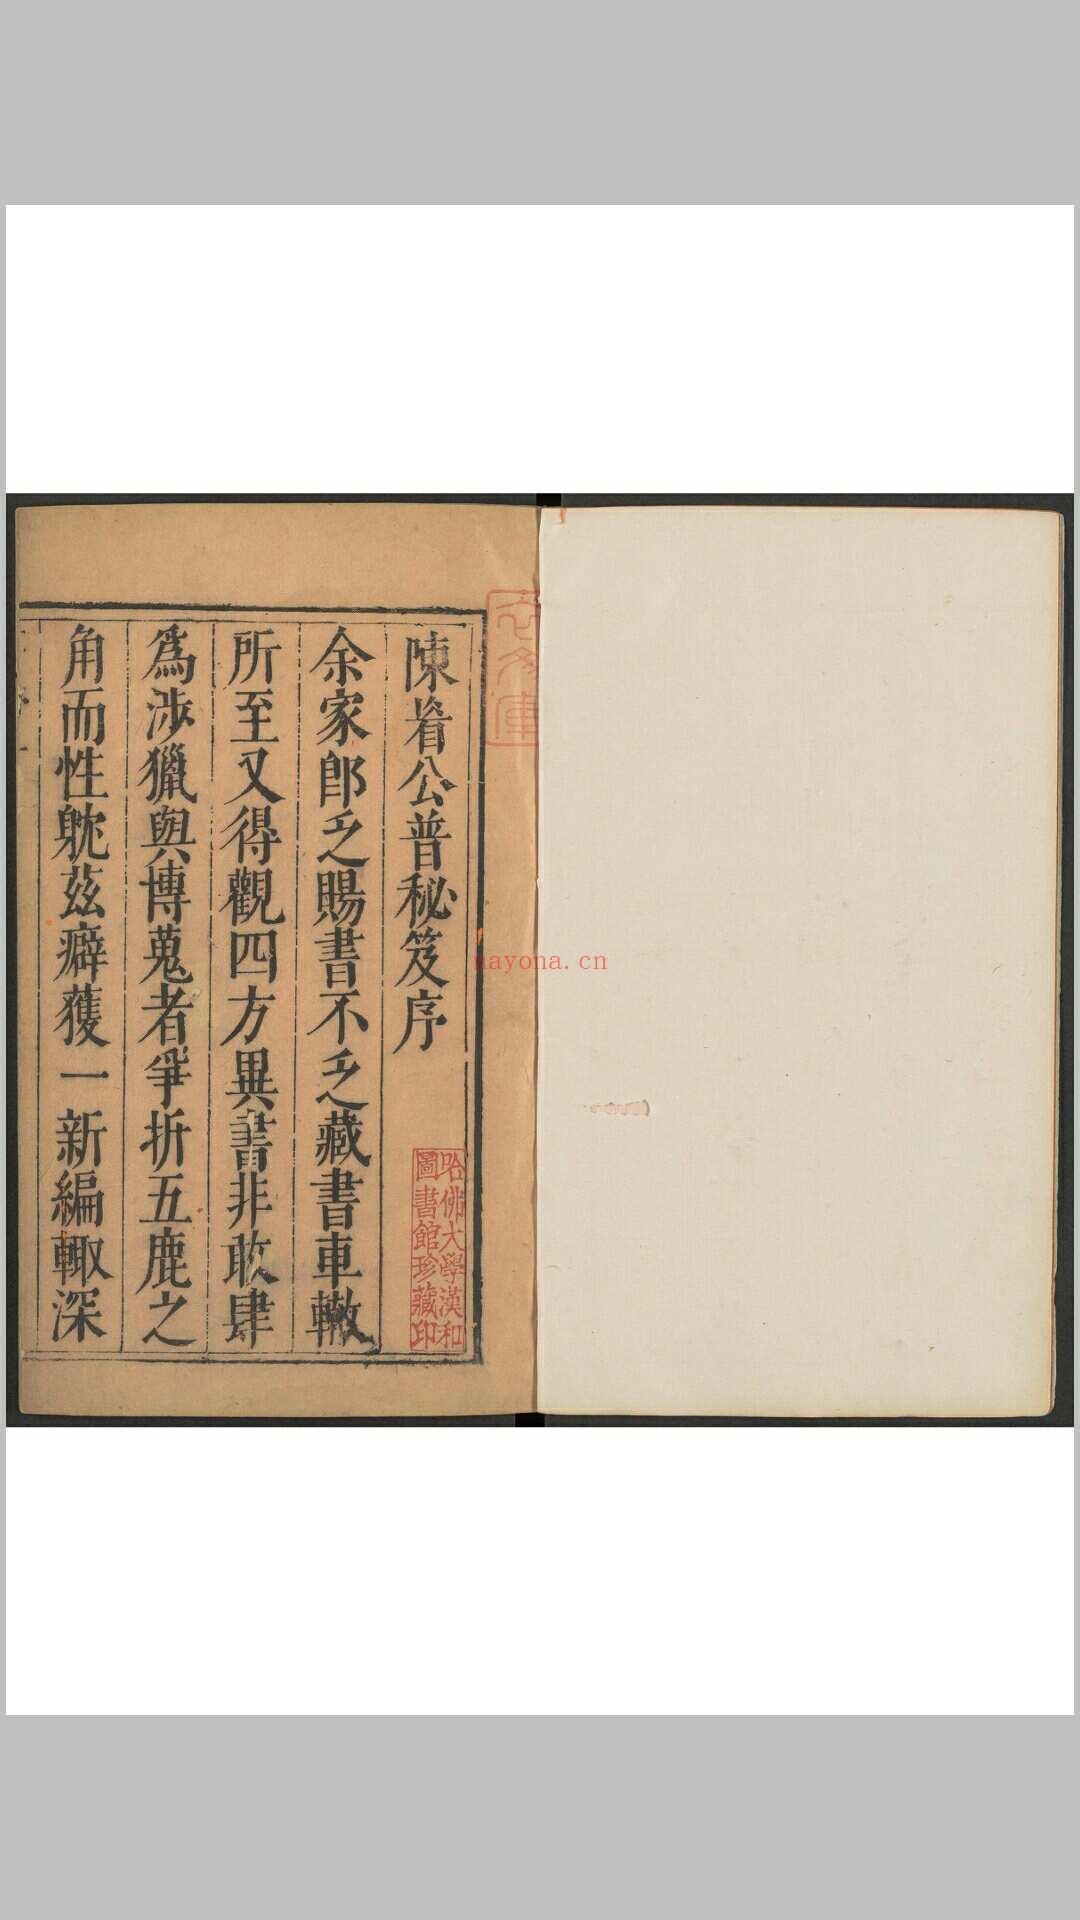 陳眉公普秘笈序
余家卽乏賜書不乏藏書車轍
所至又得觀四方異書非敢肆
爲涉獵與博蒐者爭折五鹿之
角而性躭茲癖獲一新編輙深
哈佛大學漢和
圖書館珍藏印
nayona.cn